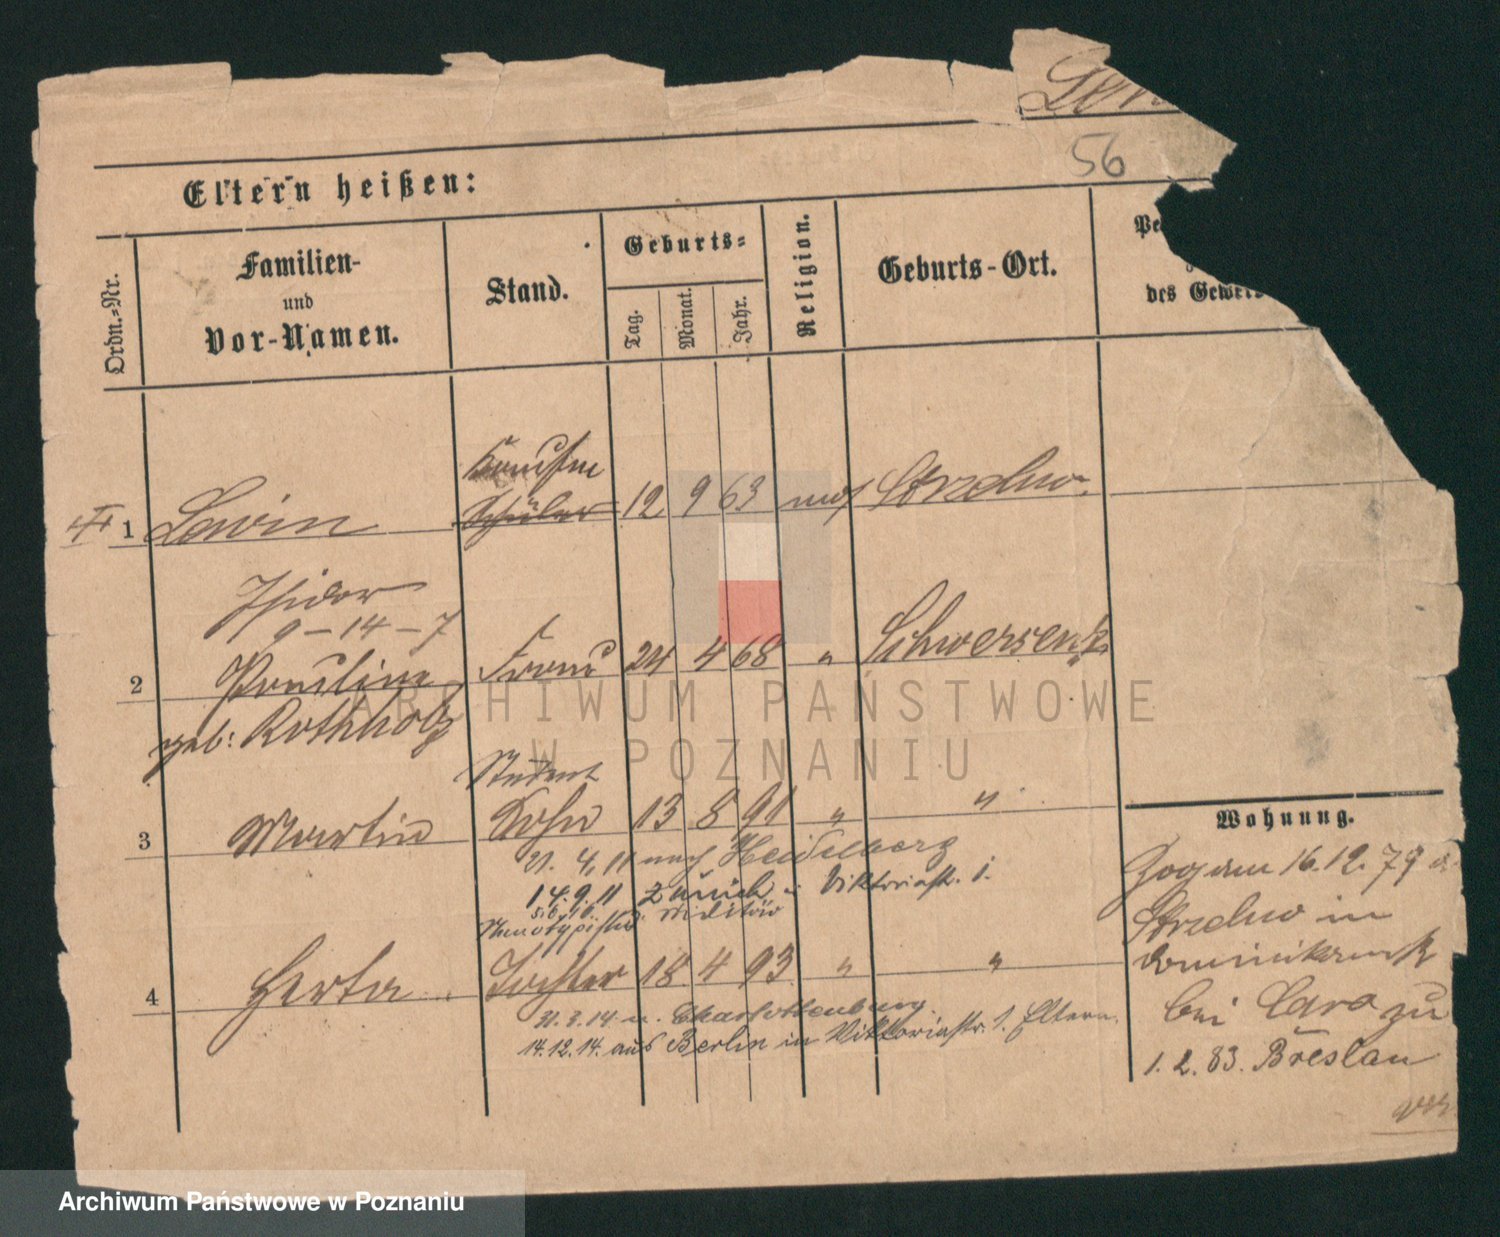 56
Eltern heißen:
Ordn.-Nr.
Familien-
und
Vor-Namen.
Stand.
Geburts-
Tag.
Monat.
Jahr.
Religion.
Geburts-Ort.
des
Kaufm
1 Lewin Schüler 12 9 63 mos Strzelno
Isidor
9-14-7
2 Pauline Frau 24 4 68 " Schwersenz
geb: Rothholz
Student
3 Martin Sohn 13 8 91 " "
21. 4. 11 nach Heidelberg
14. 9. 11 Zürich Viktoriastr. 1.
4 Herta Tochter 18 4 93 " "
31.3.14 n. Charlottenburg
14.12.14. aus Berlin in Viktoriastr. 1. Eltern.
Wohnung.
Zog am 16.12.79 a.
Strzelno in
Dominikanerstr
bei Caro zu
1. 2. 83. Breslau
ARCHIWUM PAŃSTWOWE
W POZNANIU
Archiwum Państwowe w Poznaniu